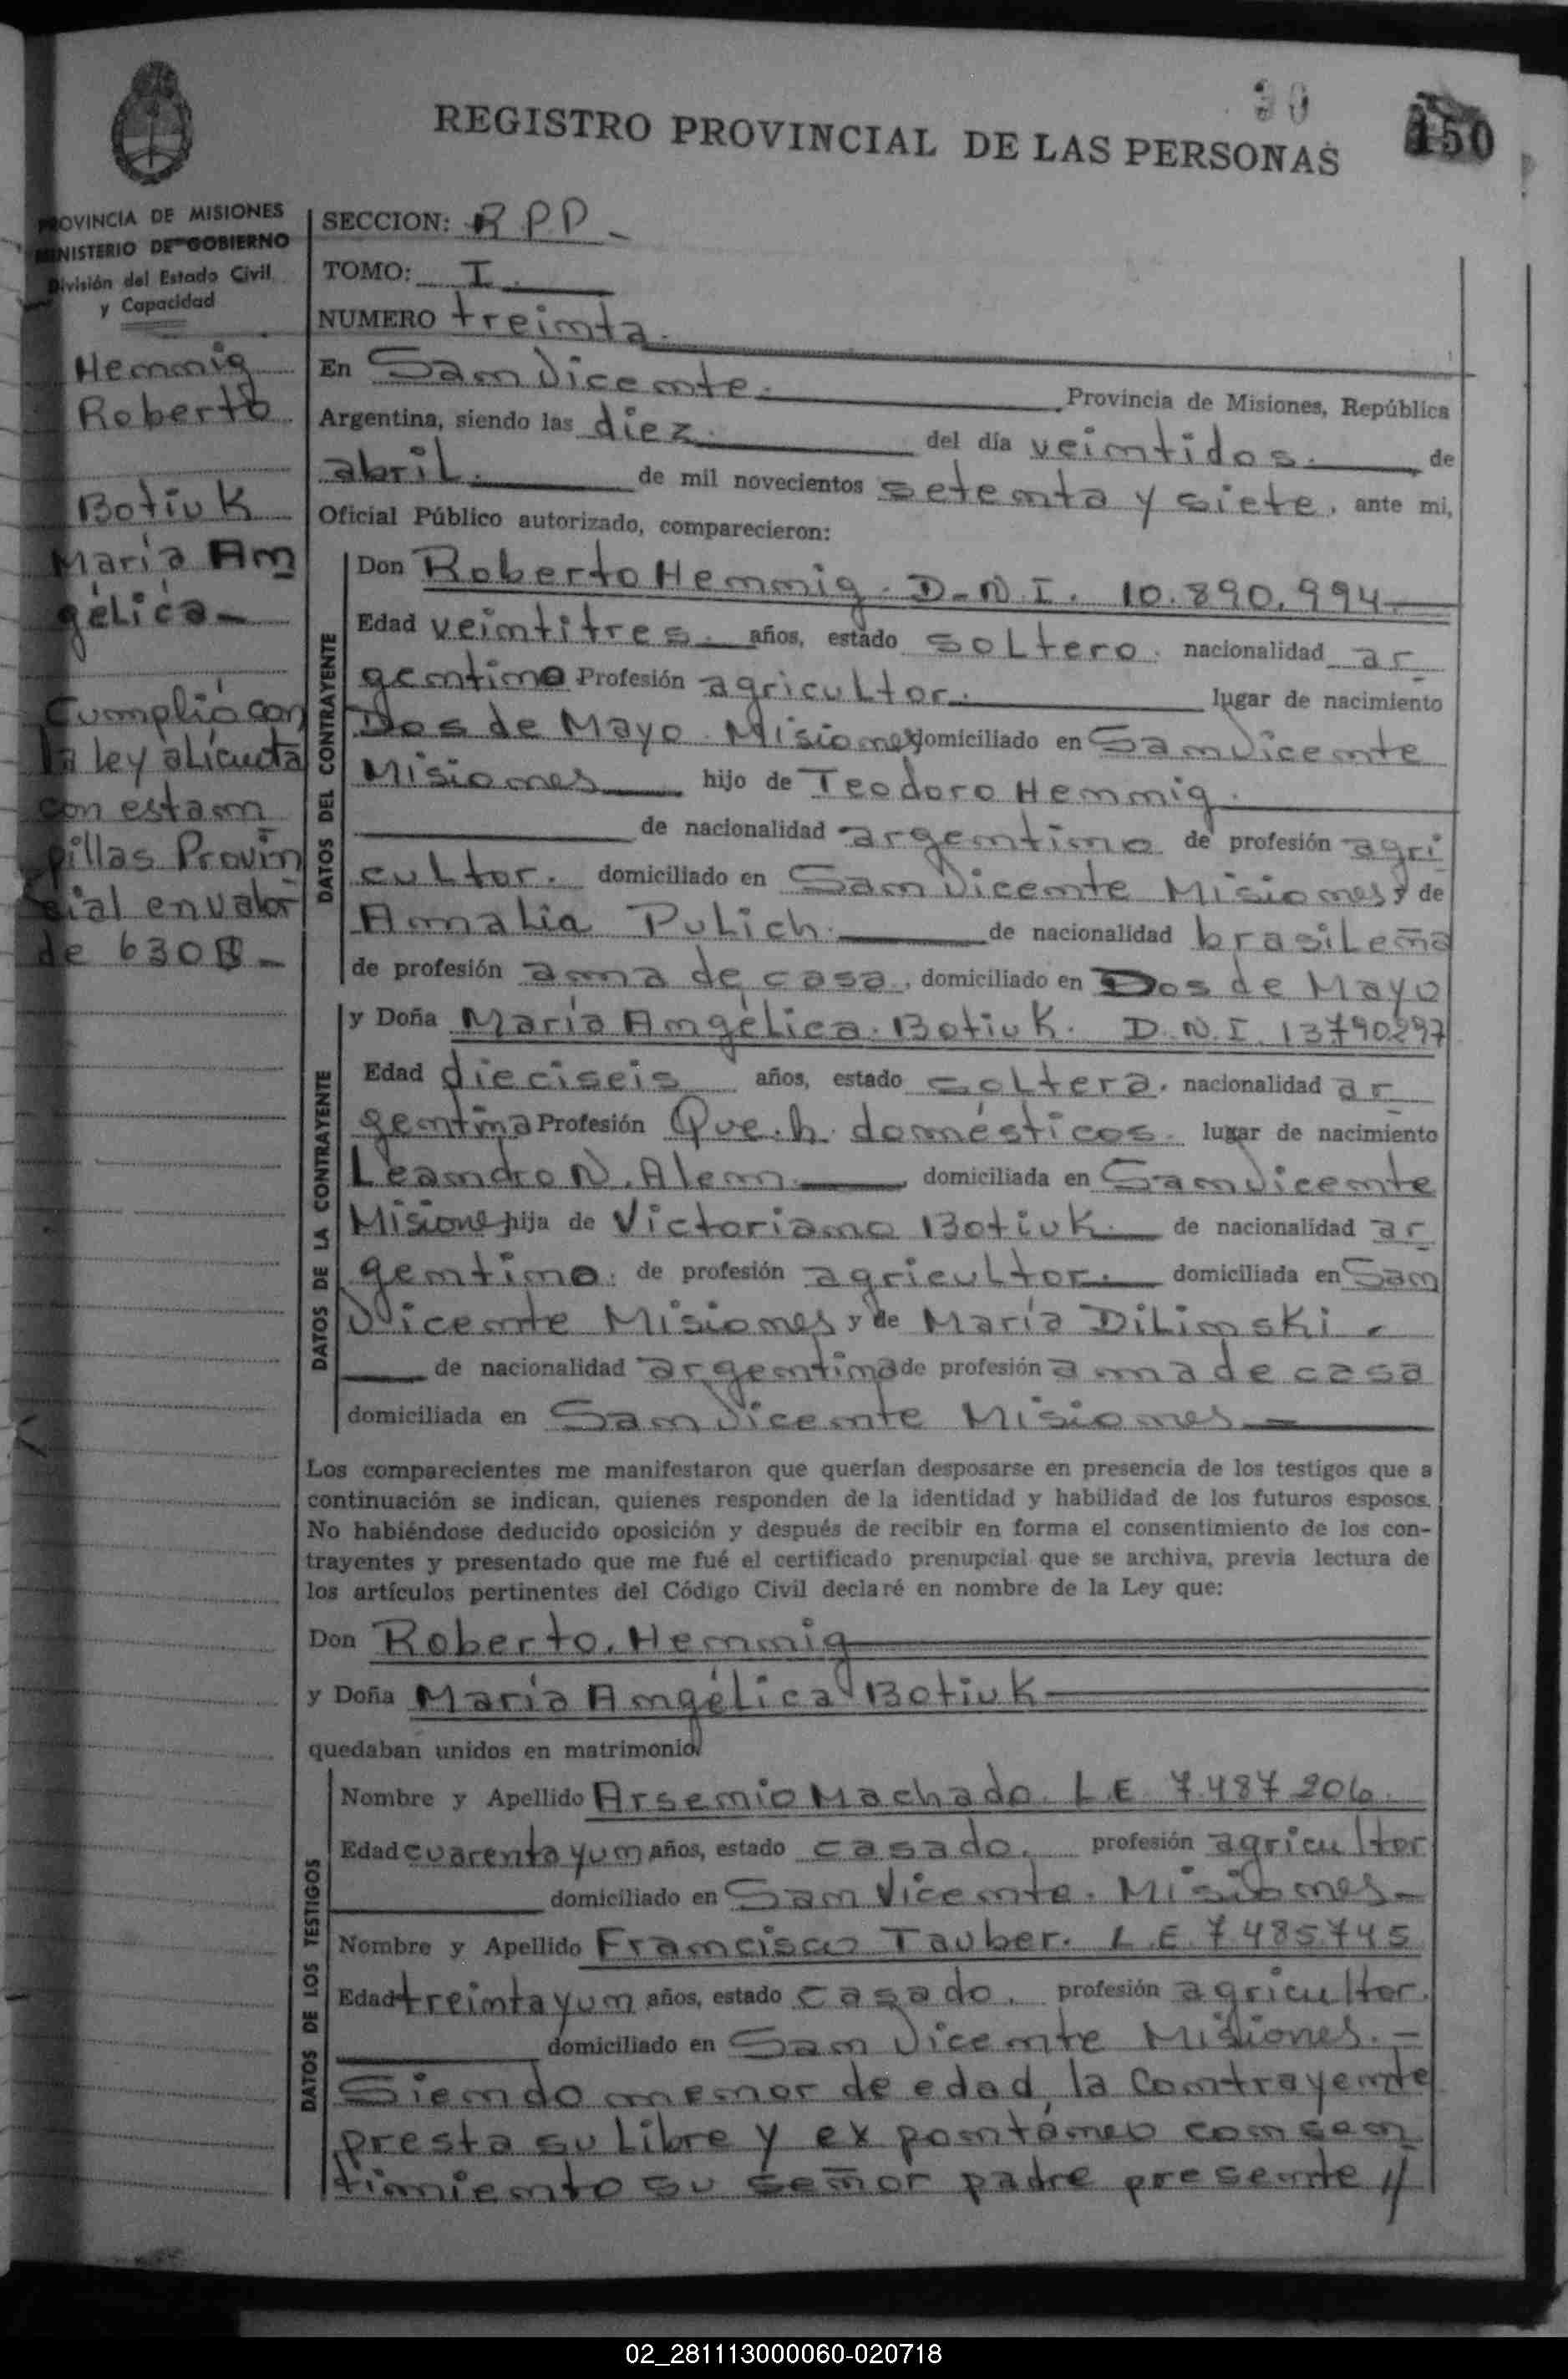 30
150
REGISTRO PROVINCIAL DE LAS PERSONAS
PROVINCIA DE MISIONES
MINISTERIO DE GOBIERNO
División del Estado Civil
y Capacidad
Hennig
Roberto
Botiuk
María An
gélica-
Cumplió con
la ley alicuota
con estam
pillas Provin
cial en valor
de 630$-
SECCION: R.P.P.-
TOMO: I.
NUMERO treinta.
En San Vicente. Provincia de Misiones, República
Argentina, siendo las diez. del día veintidos. de
abril. de mil novecientos setenta y siete, ante mi,
Oficial Público autorizado, comparecieron:
DATOS DEL CONTRAYENTE
Don Roberto Hennig. D.N.I. 10.890.994.
Edad veintitres. años, estado soltero. nacionalidad ar
gentino Profesión agricultor. lugar de nacimiento
Dos de Mayo. Misiones domiciliado en San Vicente
Misiones hijo de Teodoro Hennig.
de nacionalidad argentino de profesión agri
cultor. domiciliado en San Vicente Misiones y de
Amalia Pulich. de nacionalidad brasileña
de profesión ama de casa, domiciliado en Dos de Mayo
DATOS DE LA CONTRAYENTE
y Doña María Angélica Botiuk. D.N.I. 13790297
Edad dieciseis años, estado soltera. nacionalidad ar
gentina Profesión Que.h. domésticos. lugar de nacimiento
Leandro N. Alem. domiciliada en San Vicente
Misiones hija de Victoriano Botiuk. de nacionalidad ar
gentino. de profesión agricultor. domiciliada en San
Vicente Misiones y de María Dilinski.
de nacionalidad argentina de profesión ama de casa
domiciliada en San Vicente Misiones
Los comparecientes me manifestaron que querían desposarse en presencia de los testigos que a
continuación se indican, quienes responden de la identidad y habilidad de los futuros esposos.
No habiéndose deducido oposición y después de recibir en forma el consentimiento de los con-
trayentes y presentado que me fué el certificado prenupcial que se archiva, previa lectura de
los artículos pertinentes del Código Civil declaré en nombre de la Ley que:
Don Roberto. Hennig
y Doña María Angélica Botiuk
quedaban unidos en matrimonio
DATOS DE LOS TESTIGOS
Nombre y Apellido Arsenio Machado. L.E. 7.487.206.
Edad cuarenta y un años, estado casado. profesión agricultor
domiciliado en San Vicente. Misiones-
Nombre y Apellido Francisco Tauber. L.E. 7.485.745
Edad treinta y un años, estado casado. profesión agricultor.
domiciliado en San Vicente Misiones.-
Siendo menor de edad, la contrayente
presta su libre y expontáneo consen
timiento su señor padre presente //
02_281113000060-020718